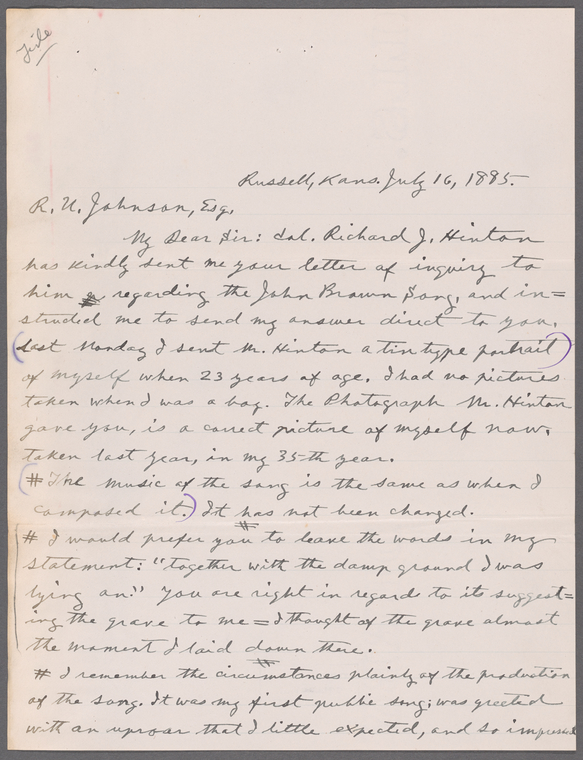 File
Russell, Kans. July 16, 1885.
R. U. Johnson, Esq.
My Dear Sir: Col. Richard J. Hinton
has kindly sent me your letter of inquiry to
him regarding the John Brown Song, and in=
structed me to send my answer direct to you.
(Last Monday I sent Mr. Hinton a tin type portrait)
of myself when 23 years of age. I had no pictures
taken when I was a boy. The Photograph Mr. Hinton
gave you, is a correct picture of myself now,
taken last year, in my 35th year.
(# The music of the song is the same as when I
composed it.) It has not been changed.
# I would prefer you to leave the words in my
statement: "together with the damp ground I was
lying on." You are right in regard to its suggest=
ing the grave to me = I thought of the grave almost
the moment I laid down there.
# I remember the circumstances plainly of the production
of the song. It was my first public song; was greeted
with an uproar that I little expected, and so impressed